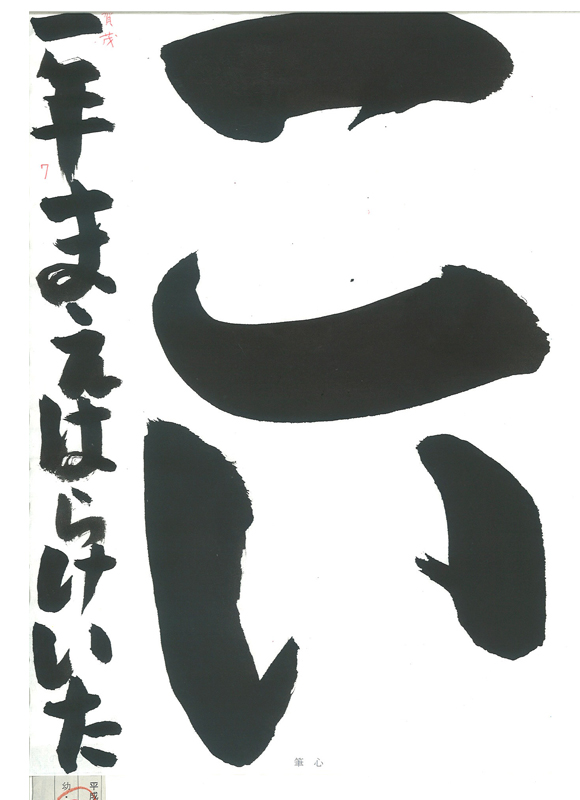 こい
一年まえはらけいた
賀茂
7
筆心
平成
幼・